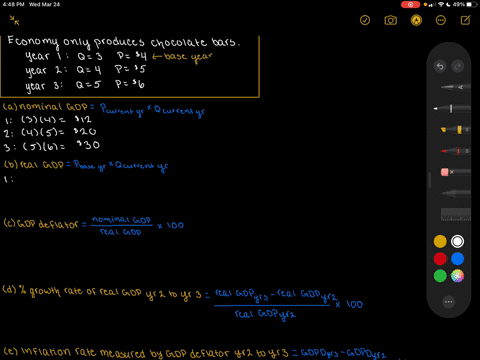 4:48 PM Wed Mar 24
49%
Economy only produces chocolate bars.
year 1: Q=3 P=$4 ← base year
year 2: Q=4 P=$5
year 3: Q=5 P=$6
(a) nominal GDP = Pcurrent yr × Qcurrent yr
1: (3)(4) = $12
2: (4)(5) = $20
3: (5)(6) = $30
(b) real GDP = Pbase yr × Qcurrent yr
1:
(c) GDP deflator = nominal GDP / real GDP × 100
(d) % growth rate of real GDP yr 2 to yr 3 = real GDPyr3 - real GDPyr2 / real GDPyr2 × 100
(e) inflation rate measured by GDP deflator yr 2 to yr 3 = GDPDyr3 - GDPDyr2